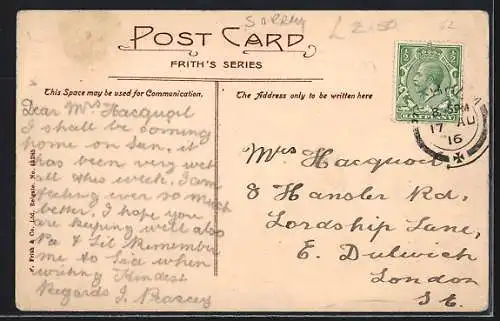 Surrey
£2.50
62
POST CARD
FRITH'S SERIES
This Space may be used for Communication.
The Address only to be written here
Dear Mrs Hacquoil
I shall be coming
home on Sun, it
has been very wet
all this week, I am
feeling ever so much
better, I hope you
are keeping well also
Pa & Lil Remember
me to when
writing Kindest
Regards J.
Mrs Hacquoil
8 Hansler Rd,
Lordship Lane,
E. Dulwich
London
S.E.
F. Frith & Co., Ltd., Reigate. No.
PM
17 AU
16